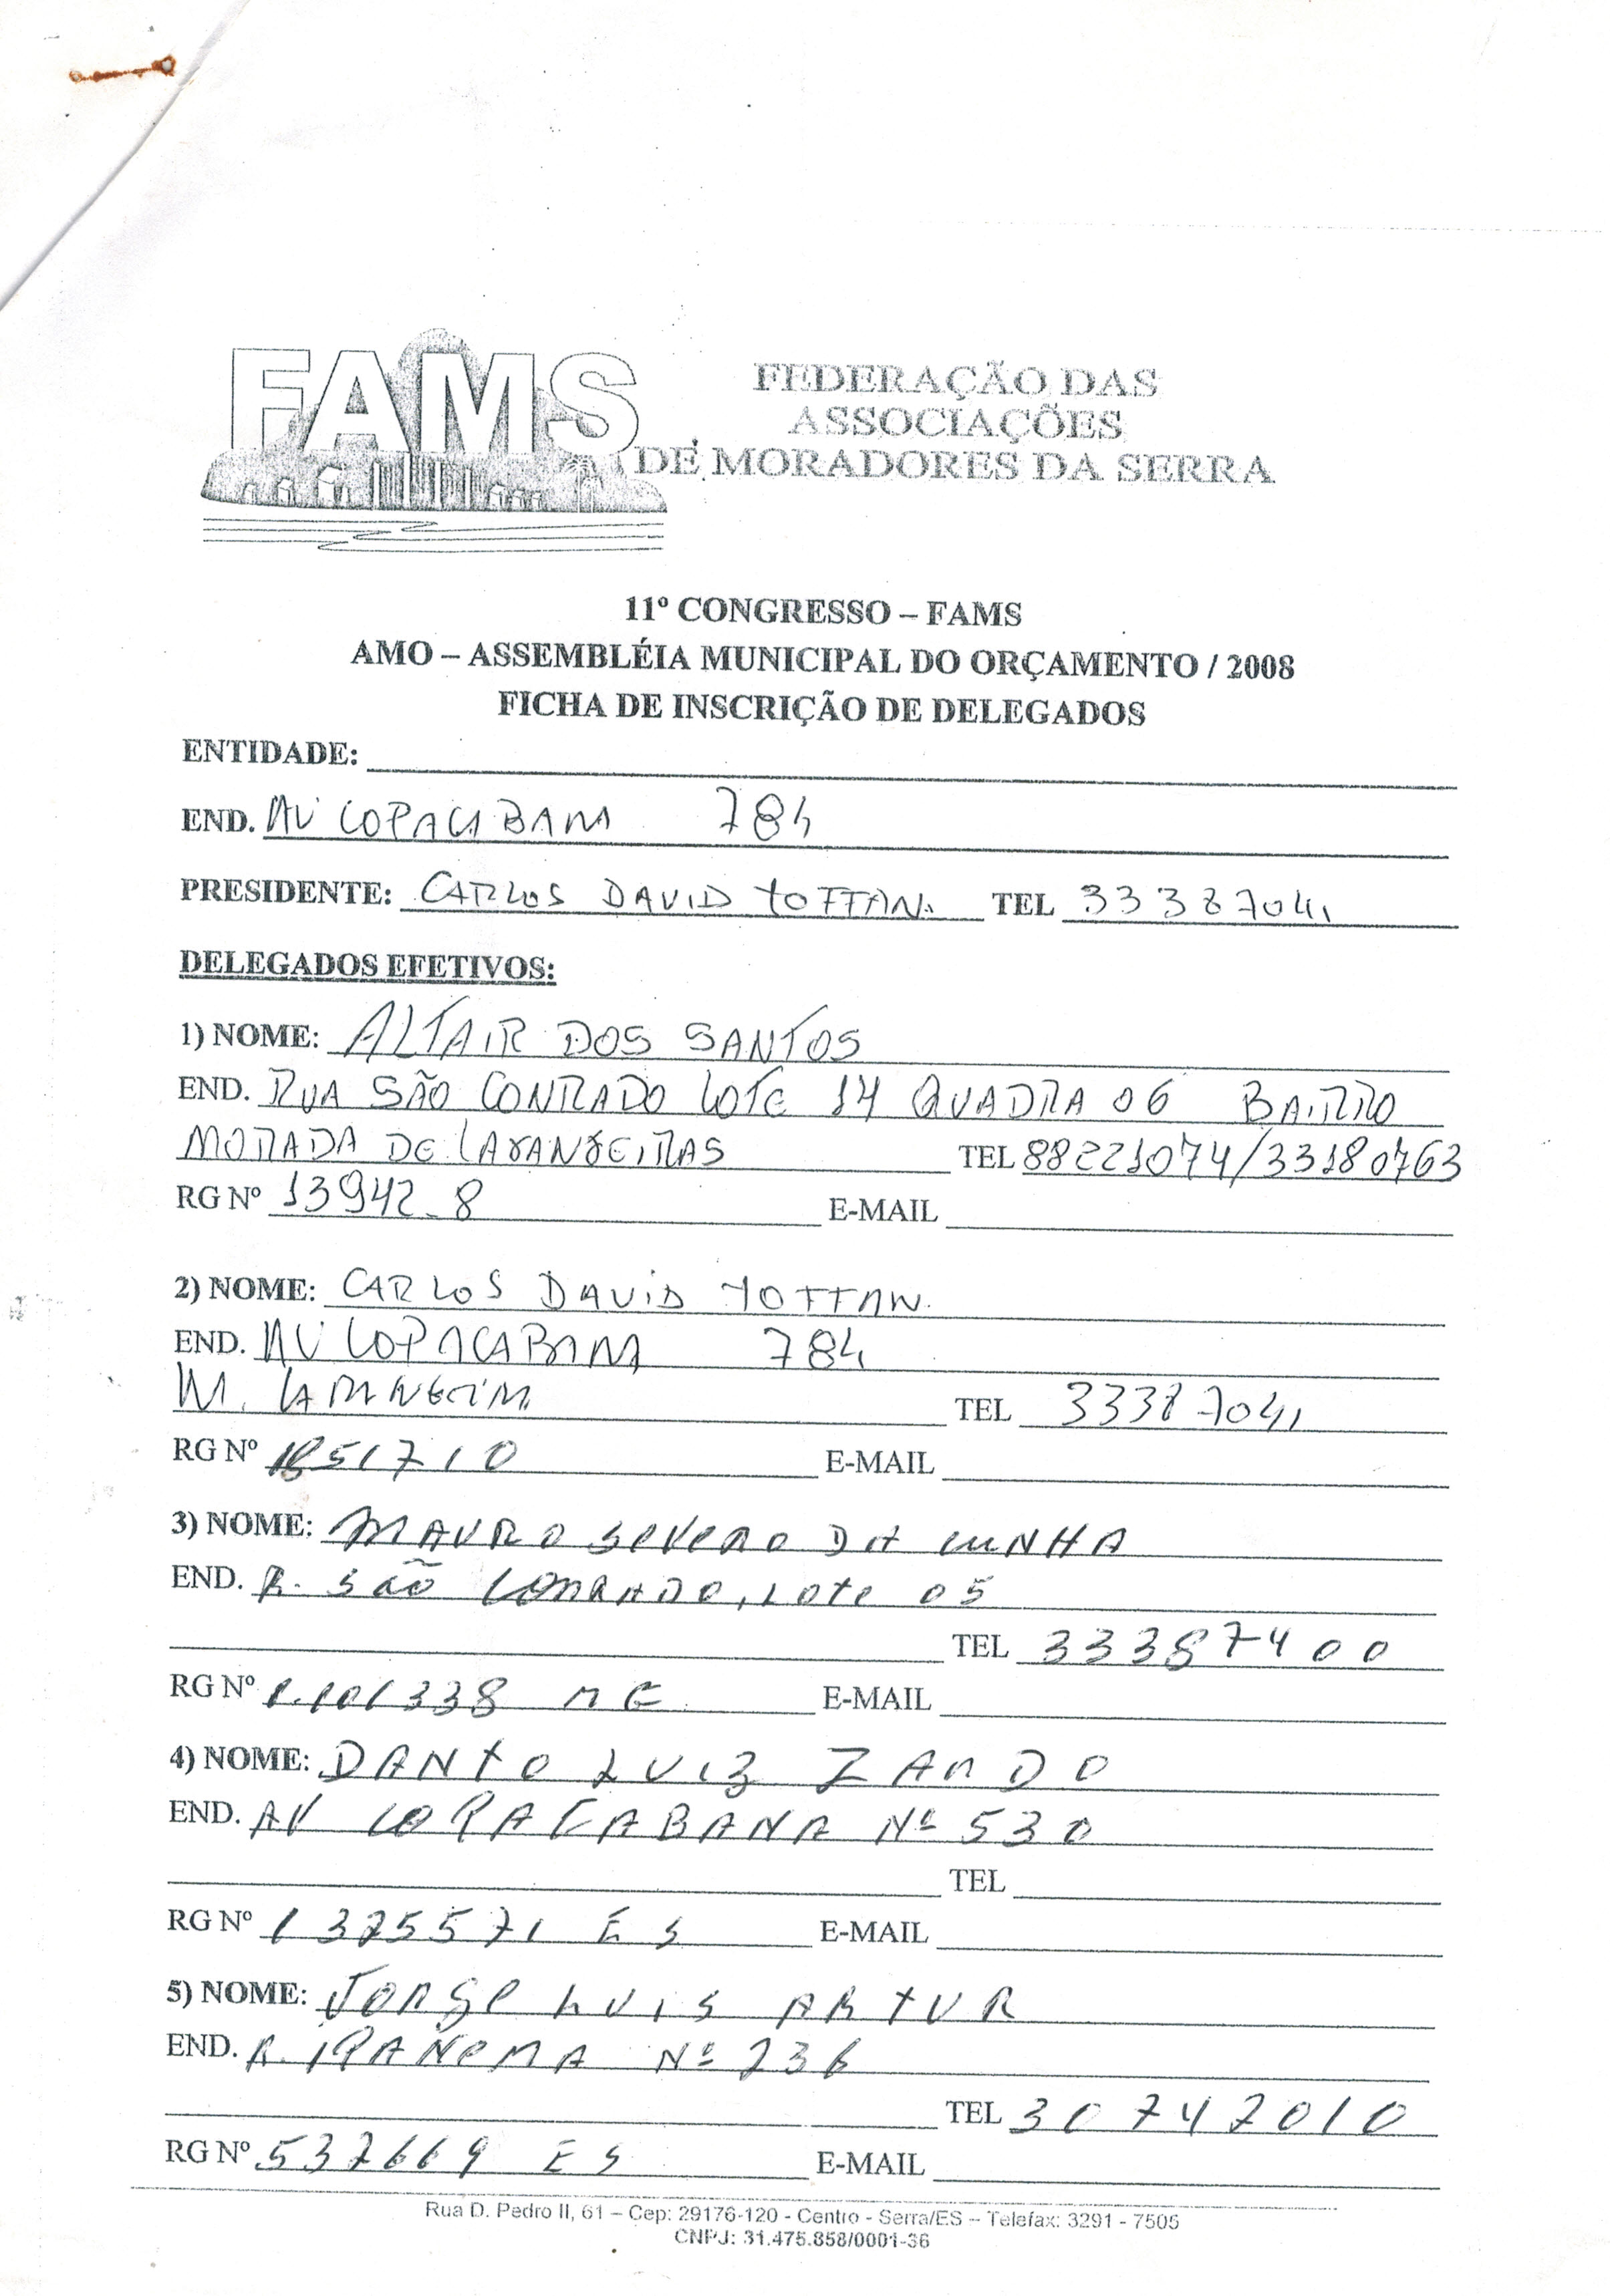 FAMS
FEDERAÇÃO DAS
ASSOCIAÇÕES
DE MORADORES DA SERRA
11º CONGRESSO – FAMS
AMO – ASSEMBLÉIA MUNICIPAL DO ORÇAMENTO / 2008
FICHA DE INSCRIÇÃO DE DELEGADOS
ENTIDADE:
END. AV COPACABANA 784
PRESIDENTE: CARLOS DAVID TEL 33387041
DELEGADOS EFETIVOS:
1) NOME: ALTAIR DOS SANTOS
END. RUA SÃO CONRADO LOTE 14 QUADRA 06 BAIRRO
MORADA DE LARANJEIRAS TEL 88221074/33180763
RG Nº 13942-8 E-MAIL
2) NOME: CARLOS DAVID
END. AV COPACABANA 784
M. TEL 33387041
RG Nº E-MAIL
3) NOME: MAURO SEVERO DA CUNHA
END. R. SÃO CONRADO, LOTE 05
TEL 33387400
RG Nº 1.101338 E-MAIL
4) NOME: DANTO LUIZ ZANDO
END. AV COPACABANA Nº 530
TEL
RG Nº 1375571 ES E-MAIL
5) NOME: JORGE LUIS ARTUR
END. R. IPANEMA Nº 236
TEL 30747010
RG Nº 537669 ES E-MAIL
Rua D. Pedro II, 61 – Cep: 29176-120 - Centro - Serra/ES – Telefax: 3291 - 7505
CNPJ: 31.475.858/0001-36